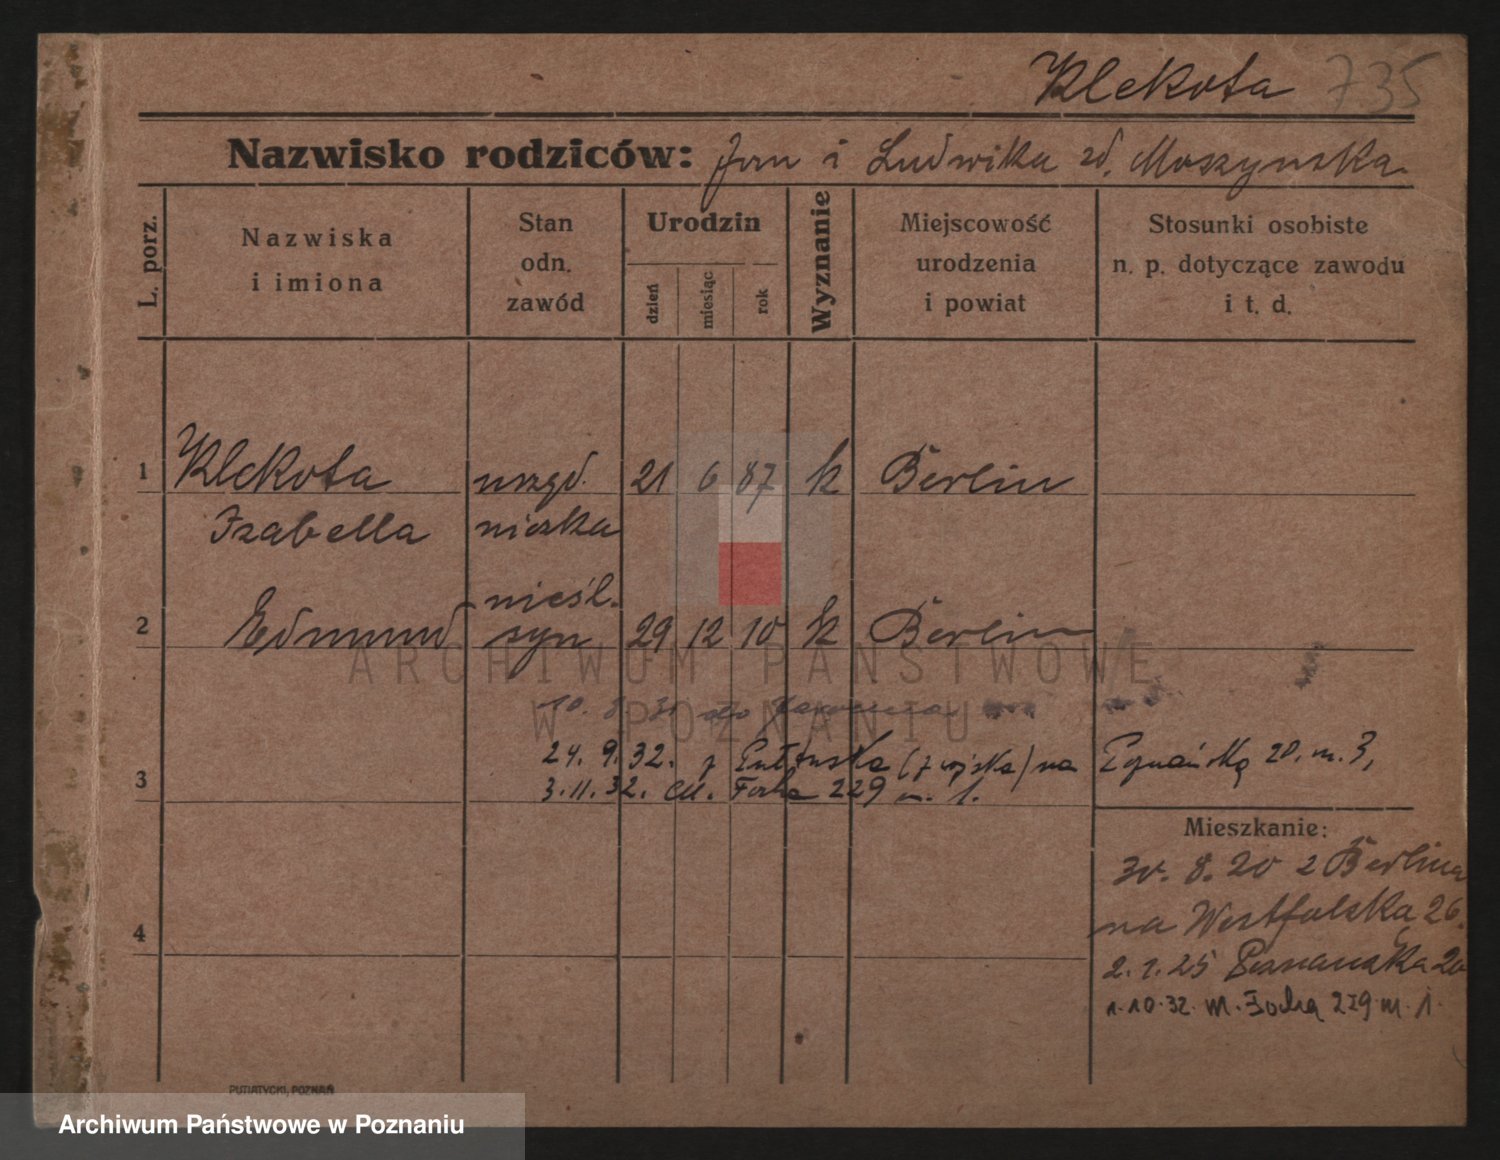 Klekota 735
Nazwisko rodziców: Jan i Ludwika zd. Moszynska.
L. porz.
Nazwiska
i imiona
Stan
odn.
zawód
Urodzin
dzień
miesiąc
rok
Wyznanie
Miejscowość
urodzenia
i powiat
Stosunki osobiste
n. p. dotyczące zawodu
i t. d.
1 Klekota 21 6 87 k Berlin
Izabella niczka
nieśl.
2 Edmund syn 29 12 10 k Berlin
ARCHIWUM PAŃSTWOWE
W POZNANIU
10. 8. 31 do
24. 9. 32. z Pułtuska (z wojska) na Poznańską 20. m. 3,
3 3. 11. 32. M. Focha 229 m. 1.
Mieszkanie:
30. 8. 20 z Berlina
na Westfalska 26.
4
2. 1. 25 Poznanska 20
1. 10. 32. M. Focha 229 m. 1.
PUTIATYCKI, POZNAŃ
Archiwum Państwowe w Poznaniu